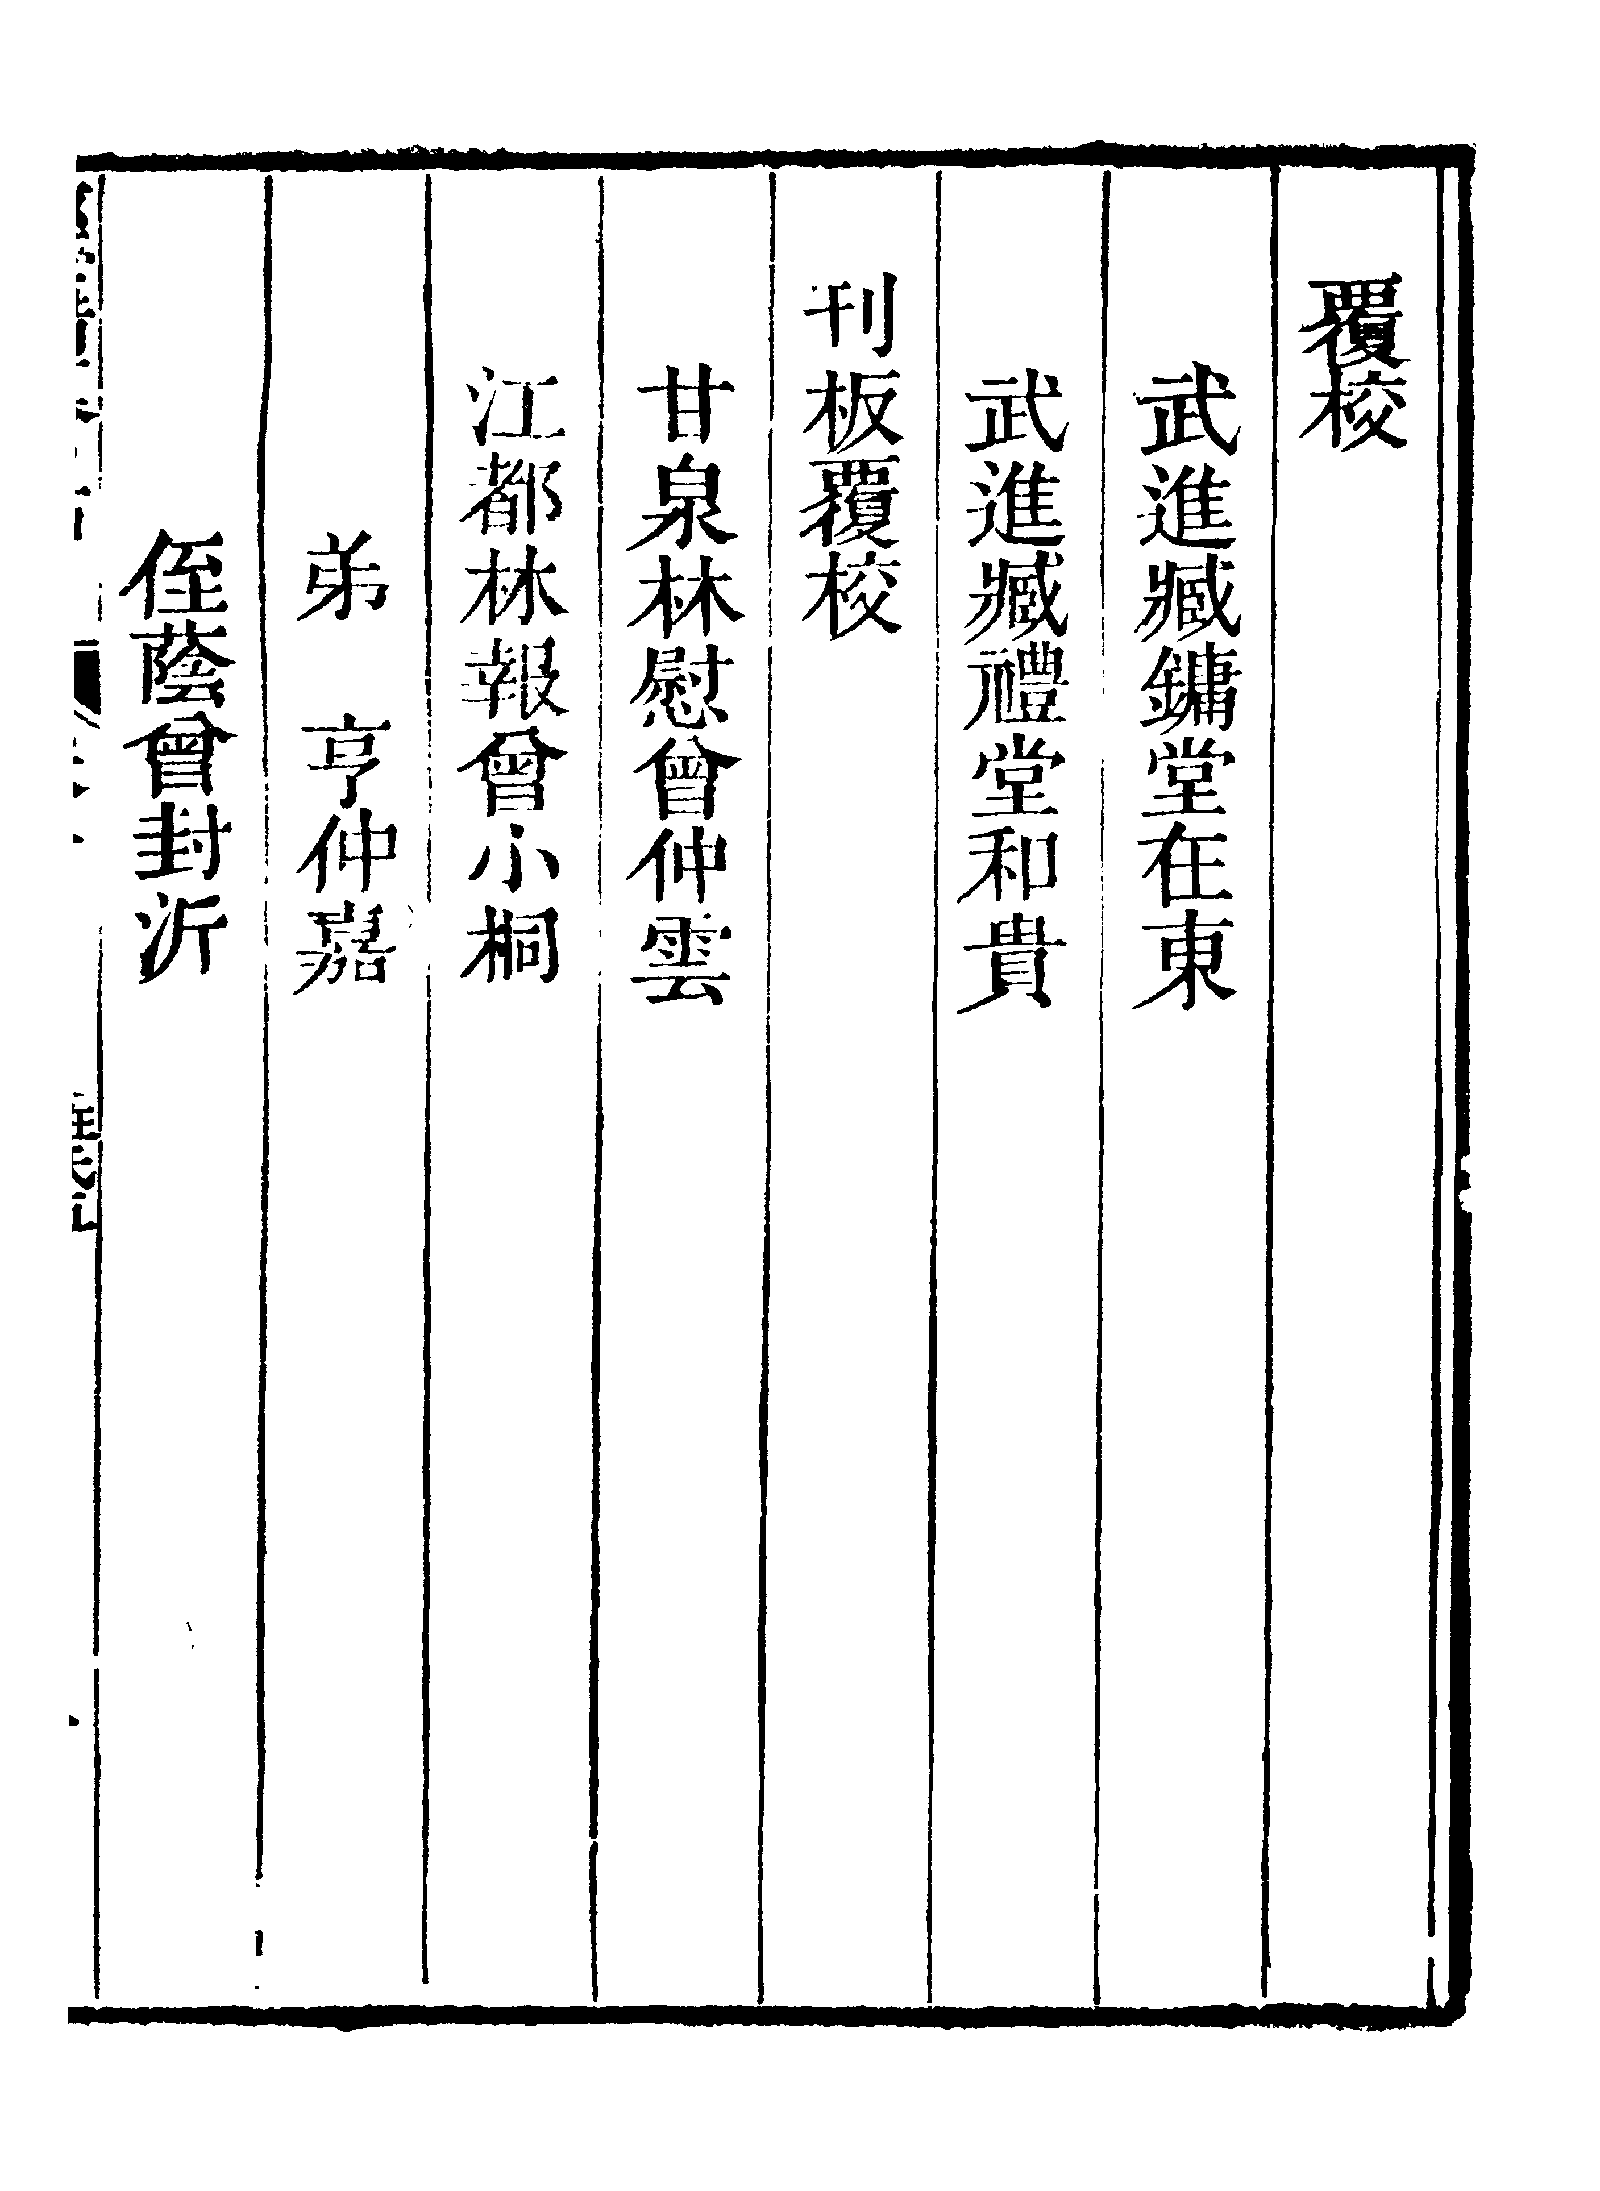 覆校
武進臧鏞堂在東
武進臧禮堂和貴
刊板覆校
甘泉林慰曾仲雲
江都林報曾小桐
弟　亨仲嘉
侄蔭曾封沂